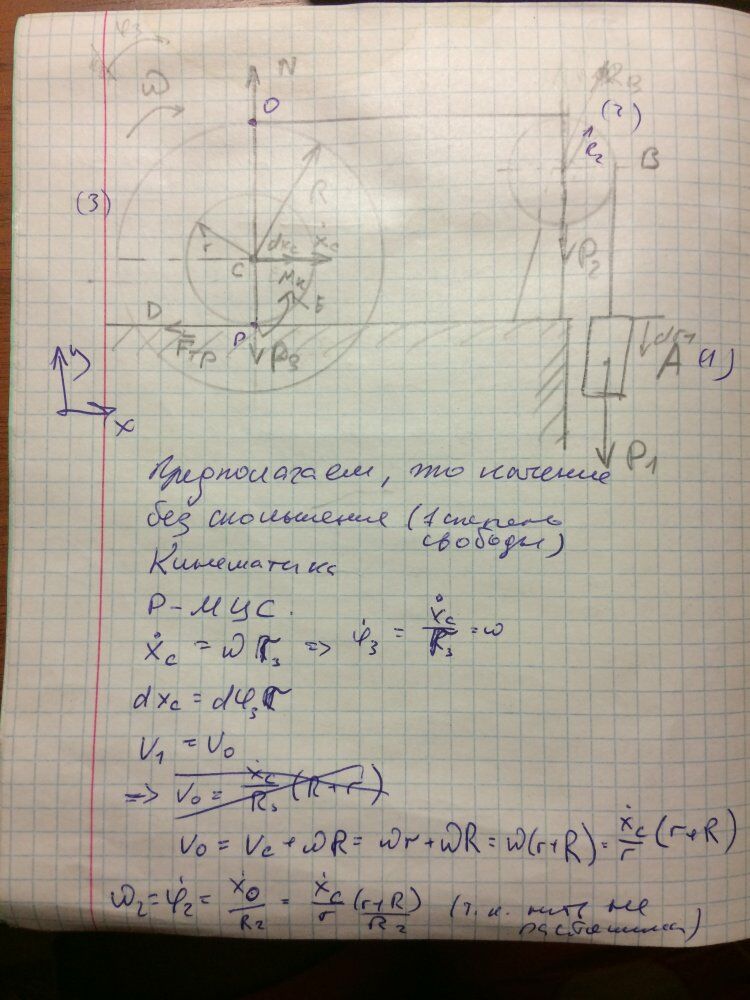 φ₃
ω
N
O
R_B
(2)
R₂
B
R
(3)
r
dx_C
ẋ_C
C
M_K
E
P₂
D
P
F_тр
P₃
y
x
A
(1)
P₁
Предполагаем, что качение
без скольжения (1 степень
свободы)
Кинематика
P – МЦС.
ẋ_C = ω r₃ => φ̇₃ = ẋ_C / r₃ = ω
dx_C = dφ₃ r
V₁ = V₀
=> V₀ = ẋ_C / R₃ (R + r)
V₀ = V_C + ωR = ωr + ωR = ω(r+R) = ẋ_C / r (r+R)
ω₂ = φ̇₂ = ẋ₀ / R₂ = ẋ_C / r (r+R) / R₂ (т.к. нить не
растяжима)